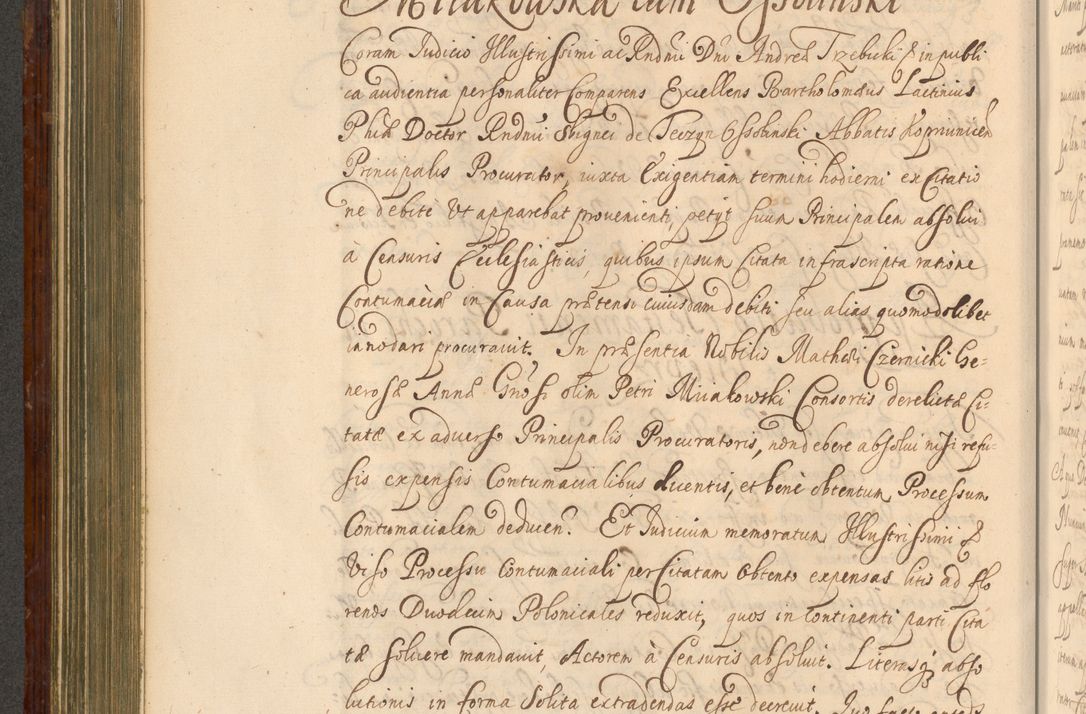 Miiakowska cum Ossolinski
Coram Judicio Illustrissimi ac Rndmi Dni Andreæ Trzebicki & in publi
ca audientia personaliter Comparens Excellens Bartholomæus Lactinius
Phiæ Doctor Rndmi Sbignei de Teczyn Ossolinski Abbatis Koprunicen
Principalis Procurator, iuxta Exigentiam termini hodierni ex Citatio
ne debitè Ut apparebat provenienti, petyt suum Principalem absolvi
à Censuris Ecclesiasticis, quibus ipsum Citata infrascripta ratione
Contumaciæ in Causa prætensi cuiusdam debiti seu alias quomodolibet
innodari procuravit. In præsentia Nobilis Mathæi Czernicki Ge-
nerosæ Annæ Gnosi olim Petri Miiakowski Consortis derelictæ Ci-
tatæ ex adverso Principalis Procuratoris, non debere absolvi nisi refu-
sis expensis Contumacialibus dicentis, et benè obtentum Processum
Contumacialem deducen. Et Judicium memoratum Illustrissimi &
Viso Processu Contumaciali per Citatam Obtento expensas litis ad flo
renos Duodecim Polonicales reduxit, quos in continenti parti Cita
tæ solvere mandavit, Actorem à Censuris absolvit. Literasq abso
lutionis in forma Solita extradendas esse decrevit.